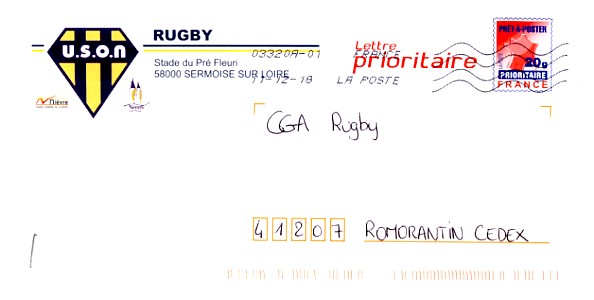 U.S.O.N
RUGBY
Stade du Pré Fleuri
58000 SERMOISE SUR LOIRE
Nièvre
03320A-01 FRANCE
11-12-18 LA POSTE
Lettre
prioritaire
PRÊT-À-POSTER
20g
PRIORITAIRE
FRANCE
CGA Rugby
41207 ROMORANTIN CEDEX